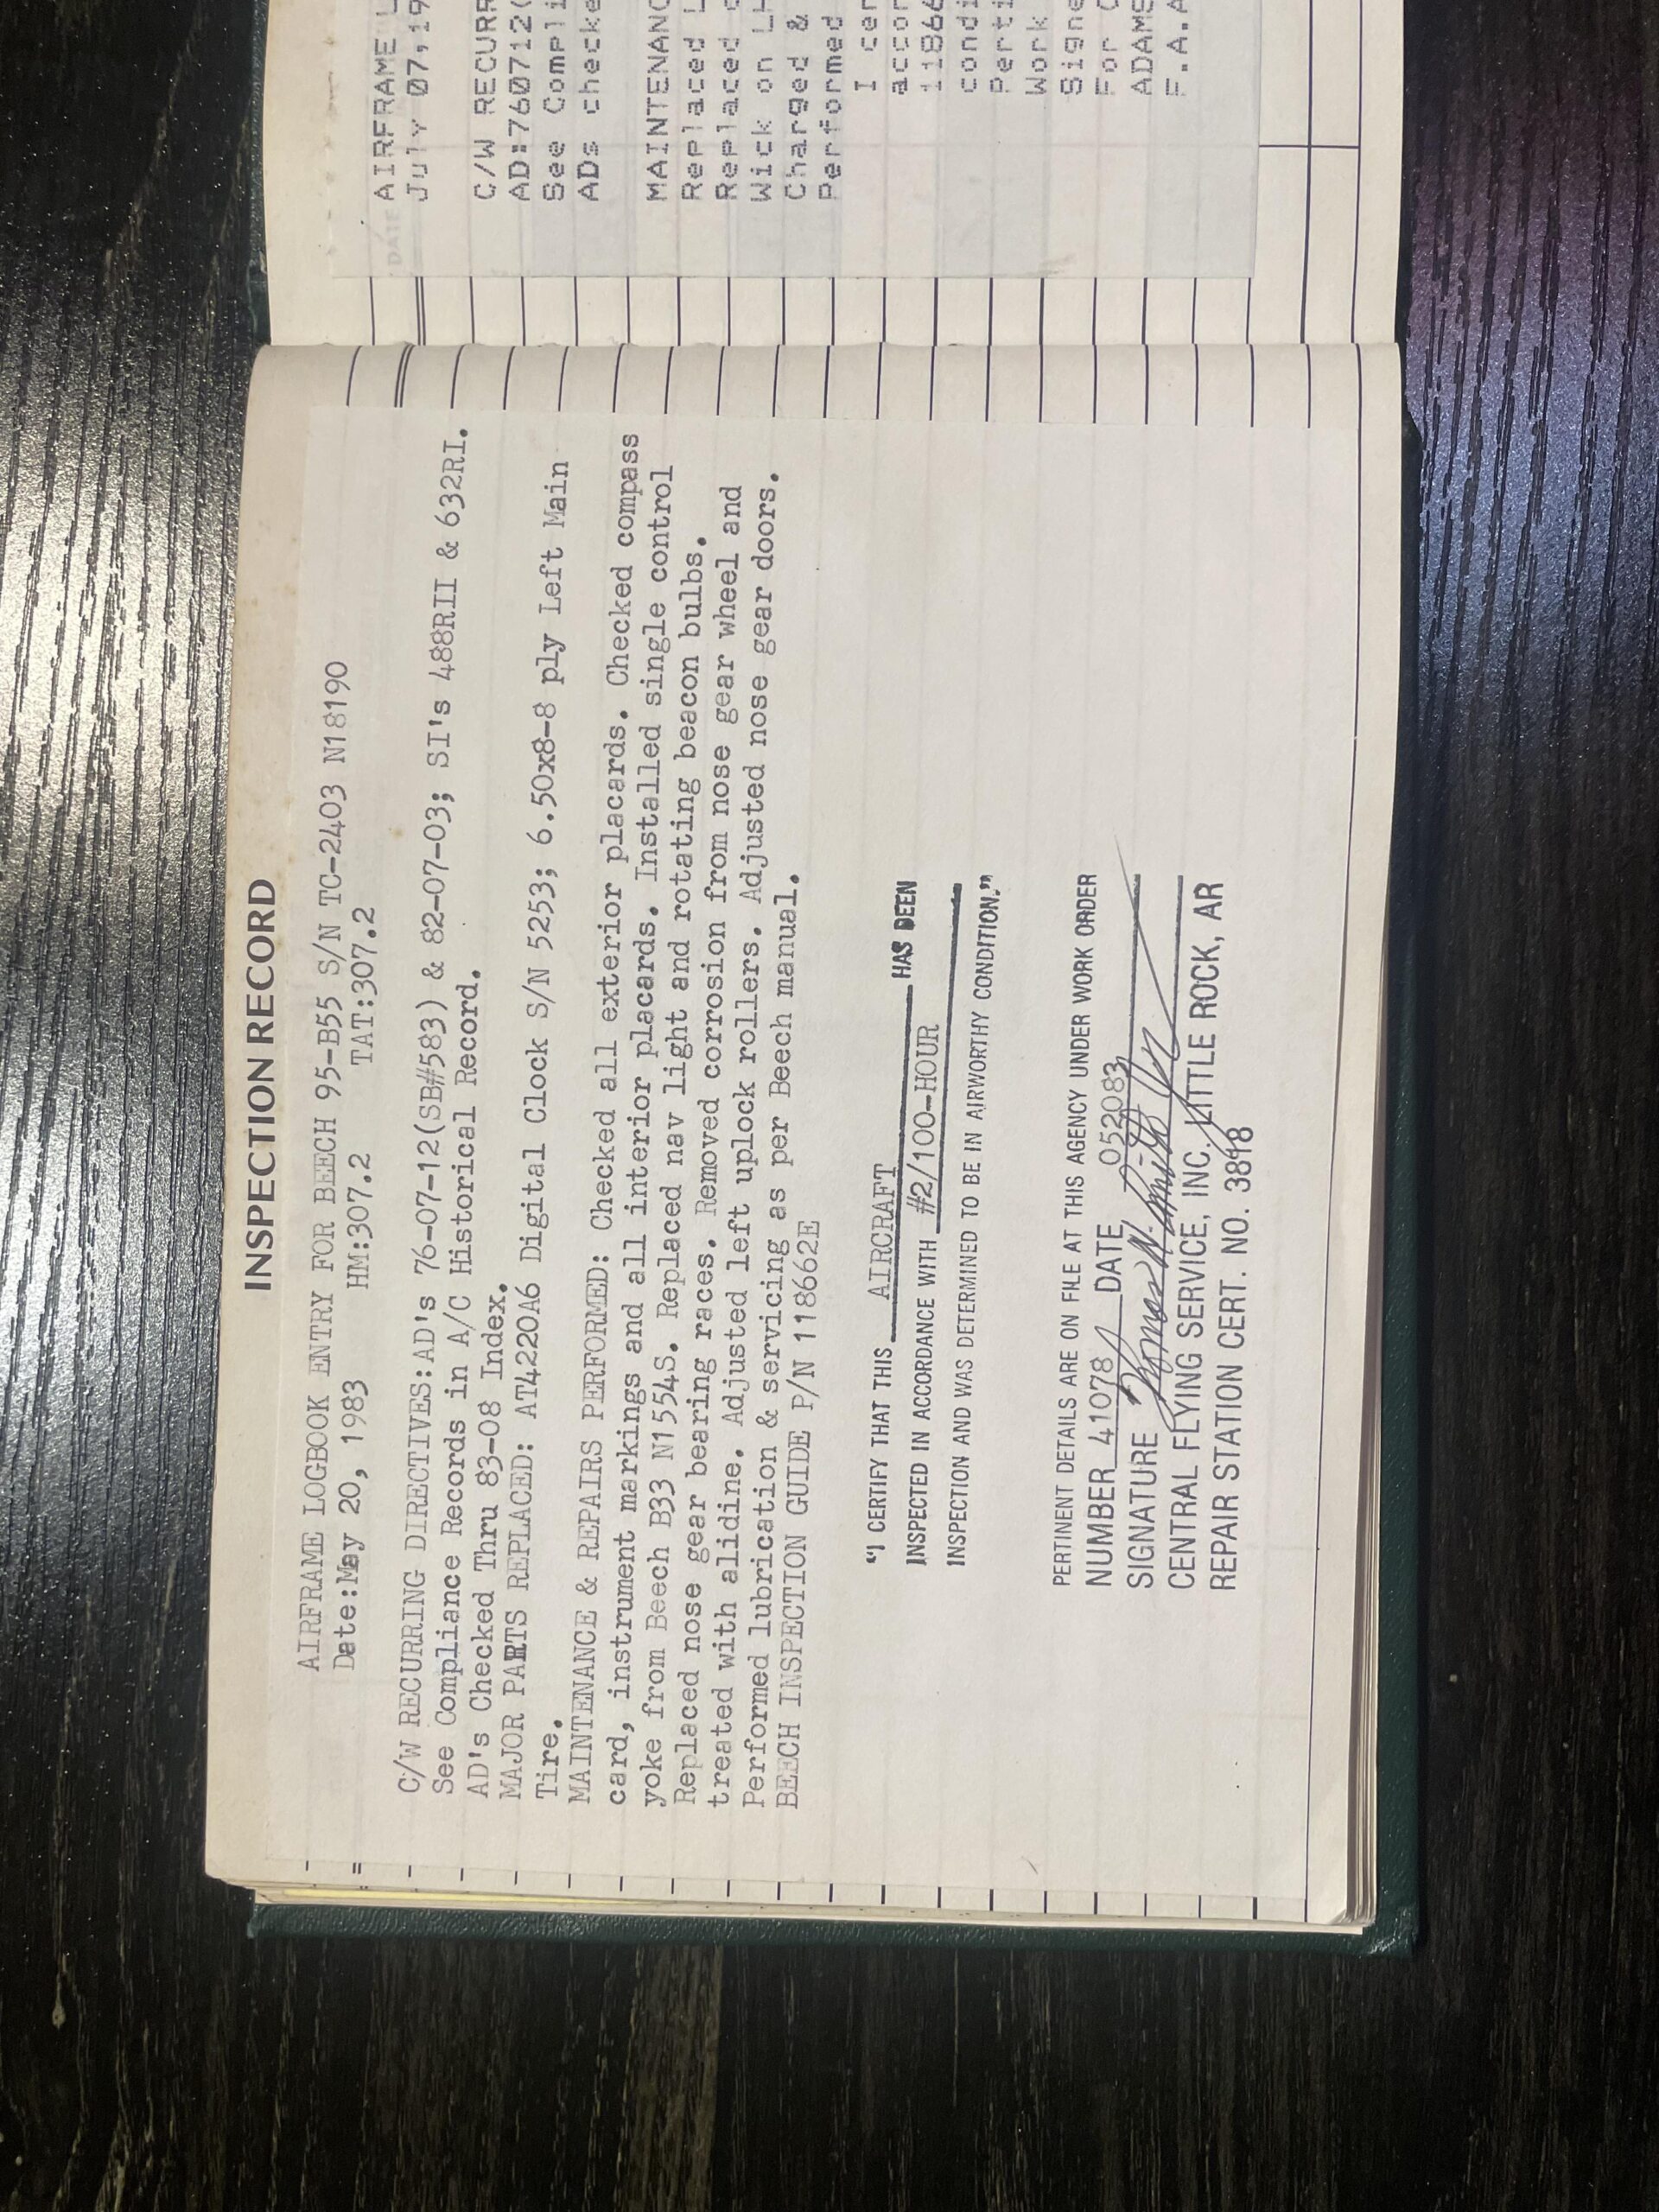 INSPECTION RECORD
AIRFRAME LOGBOOK ENTRY FOR BEECH 95-B55 S/N TC-2403 N18190
Date:May 20, 1983 HM:307.2 TAT:307.2
C/W RECURRING DIRECTIVES:AD's 76-07-12(SB#583) & 82-07-03; SI's 488RII & 632RI.
See Compliance Records in A/C Historical Record.
AD's Checked Thru 83-08 Index.
MAJOR PARTS REPLACED: AT4220A6 Digital Clock S/N 5253; 6.50x8-8 ply Left Main
Tire.
MAINTENANCE & REPAIRS PERFORMED: Checked all exterior placards. Checked compass
card, instrument markings and all interior placards. Installed single control
yoke from Beech B33 N1554S. Replaced nav light and rotating beacon bulbs.
Replaced nose gear bearing races. Removed corrosion from nose gear wheel and
treated with alidine. Adjusted left uplock rollers. Adjusted nose gear doors.
Performed lubrication & servicing as per Beech manual.
BEECH INSPECTION GUIDE P/N 118662E
"I CERTIFY THAT THIS AIRCRAFT HAS BEEN
INSPECTED IN ACCORDANCE WITH #2/100-HOUR
INSPECTION AND WAS DETERMINED TO BE IN AIRWORTHY CONDITION."
PERTINENT DETAILS ARE ON FILE AT THIS AGENCY UNDER WORK ORDER
NUMBER 41078 DATE 052083
SIGNATURE Thomas
CENTRAL FLYING SERVICE, INC. LITTLE ROCK, AR
REPAIR STATION CERT. NO. 3818
DATE
AIRFRAME L
July 07,19
C/W RECURR
AD:760712(
See Compli
ADs checke
MAINTENANC
Replaced L
Replaced
Wick on LH
Charged &
Performed
I cer
accor
11866
condi
Perti
Work
Signe
For C
ADAMS
F.A.A